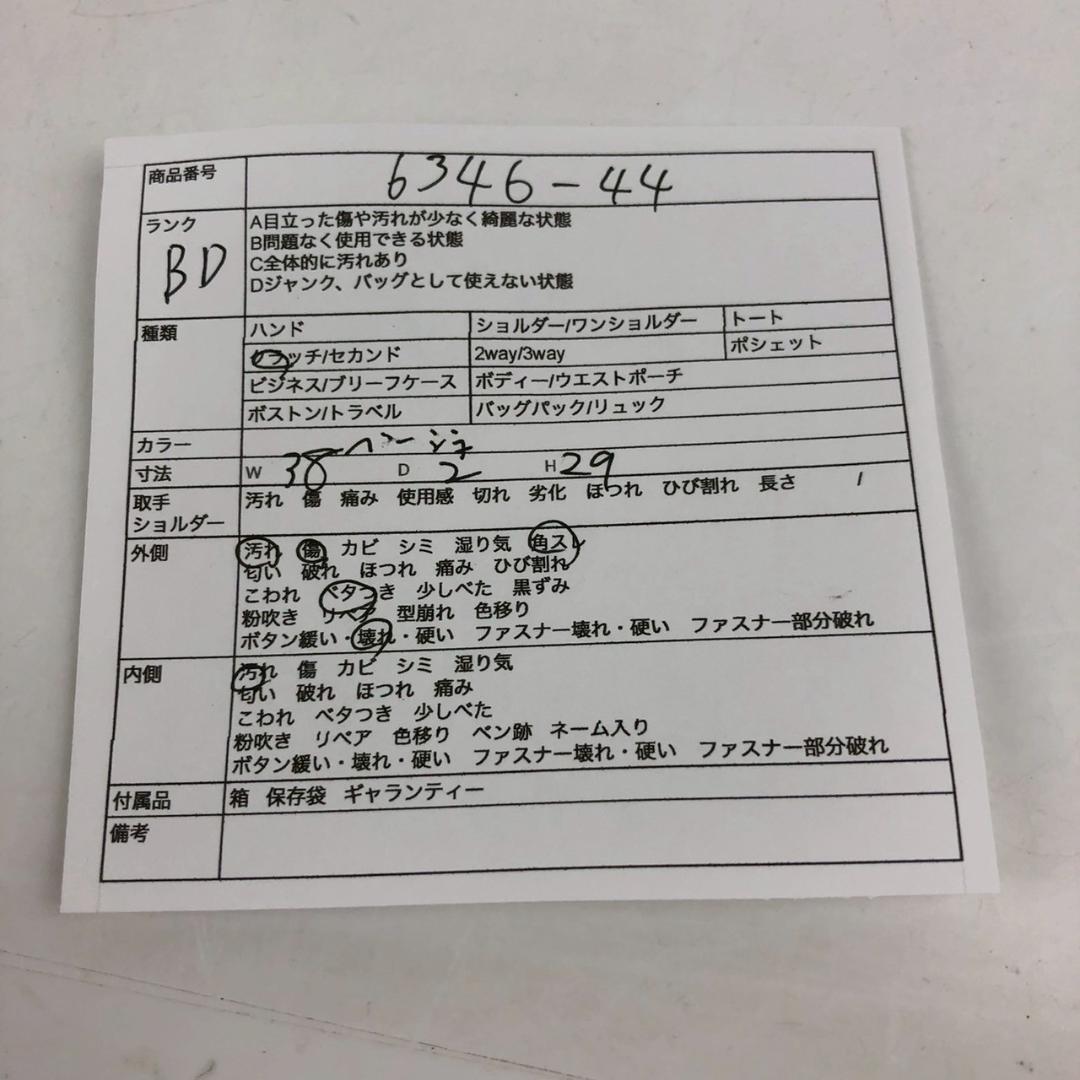 商品番号 6346-44
ランク BD
A目立った傷や汚れが少なく綺麗な状態
B問題なく使用できる状態
C全体的に汚れあり
Dジャンク、バッグとして使えない状態
種類 ハンド ショルダー/ワンショルダー トート
クラッチ/セカンド 2way/3way ポシェット
ビジネス/ブリーフケース ボディー/ウエストポーチ
ボストン/トラベル バッグパック/リュック
カラー ベージュ
寸法 W 38 D 2 H 29
取手 汚れ 傷 痛み 使用感 切れ 劣化 ほつれ ひび割れ 長さ /
ショルダー
外側 汚れ 傷 カビ シミ 湿り気 角スレ
匂い 破れ ほつれ 痛み ひび割れ
こわれ ベタつき 少しべた 黒ずみ
粉吹き リペア 型崩れ 色移り
ボタン緩い・壊れ・硬い ファスナー壊れ・硬い ファスナー部分破れ
内側 汚れ 傷 カビ シミ 湿り気
匂い 破れ ほつれ 痛み
こわれ ベタつき 少しべた
粉吹き リペア 色移り ペン跡 ネーム入り
ボタン緩い・壊れ・硬い ファスナー壊れ・硬い ファスナー部分破れ
付属品 箱 保存袋 ギャランティー
備考